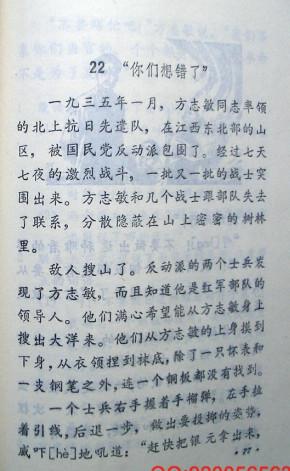 22 “你们想错了”
一九三五年一月，方志敏同志率领
的北上抗日先遣队，在江西东北部的山
区，被国民党反动派包围了。经过七天
七夜的激烈战斗，一批又一批的战士突
围出来。方志敏和几个战士跟部队失去
了联系，分散隐蔽在山上密密的树林
里。
敌人搜山了。反动派的两个士兵发
现了方志敏，而且知道他是红军部队的
领导人。他们满心希望能从方志敏身上
搜出大洋来。他们从方志敏的上身摸到
下身，从衣领捏到袜底，除了一只怀表和
一支钢笔之外，连一个铜板都没有找到。
一个士兵右手握着手榴弹，左手拉
着引线，后退一步，做出要投掷的姿势，
威吓[hè]地吼道：“赶快把银元拿出来，
77